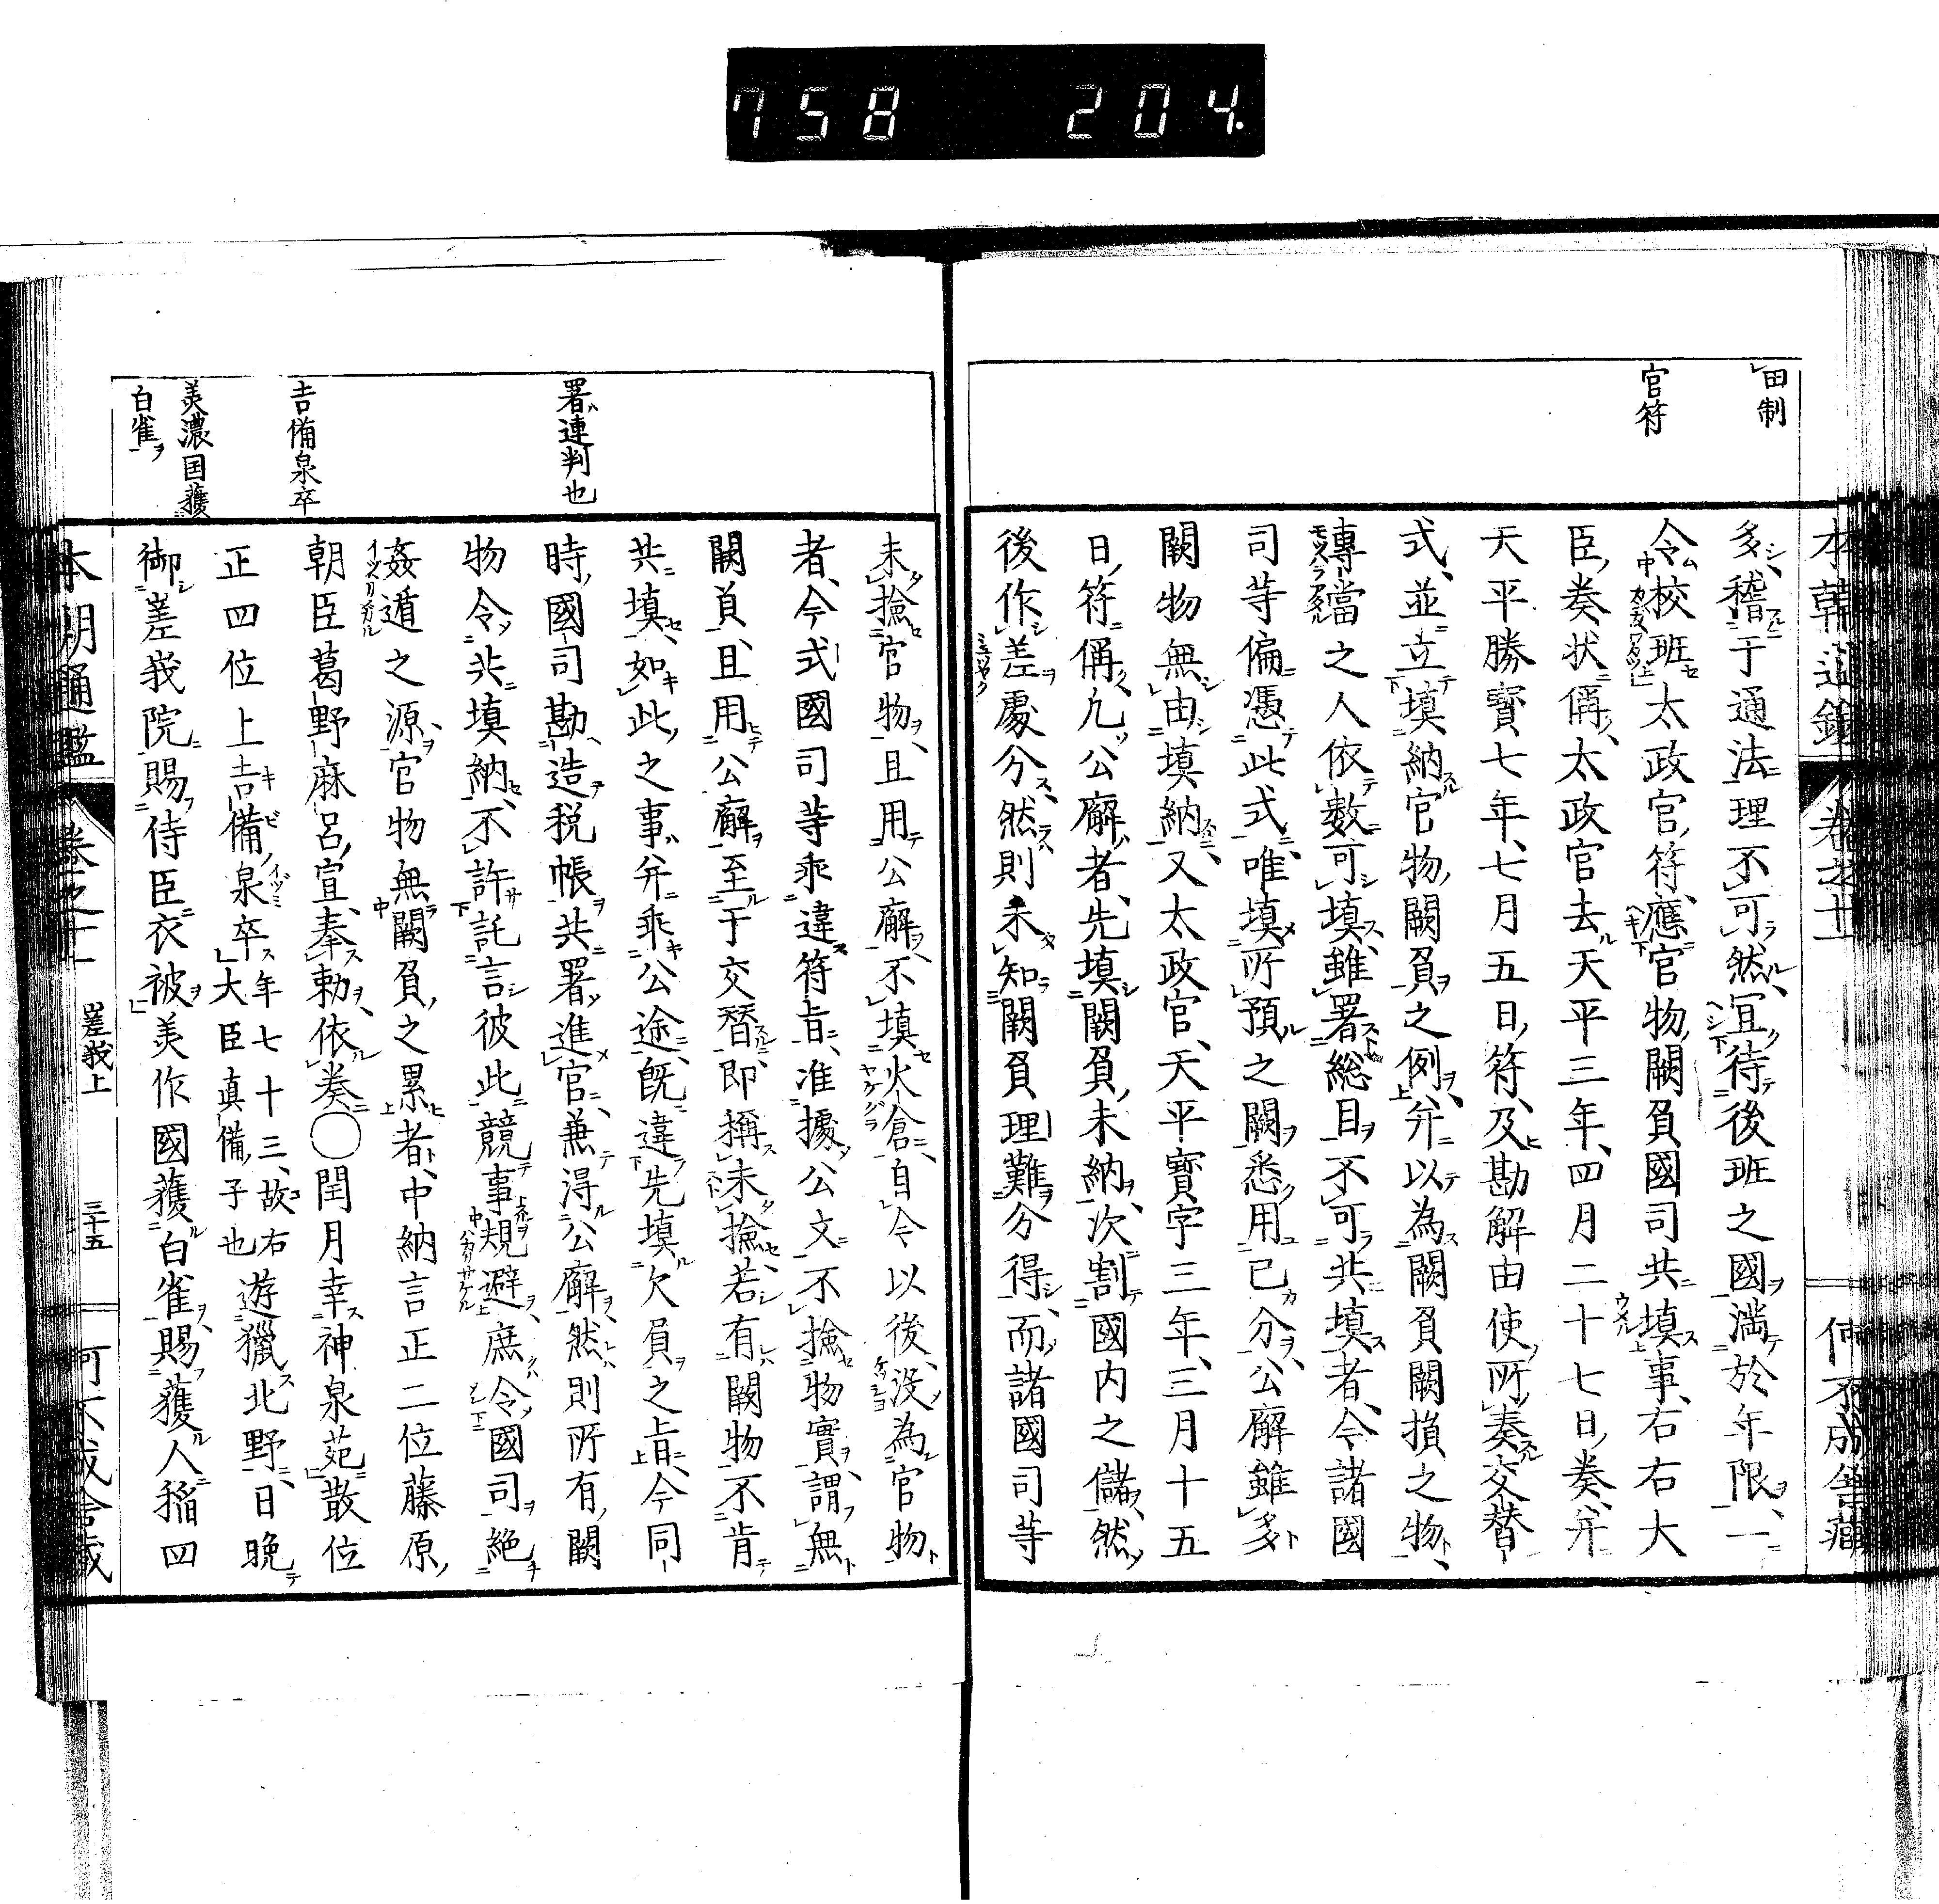 758 204.
田制
官符
多稽于通法理不可然冝待後班之國満於年限一
令校班太政官符應官物闕負國司共填事右右大
臣奏状偁太政官去天平三年四月二十七日奏并
天平勝寳七年七月五日符及勘解由使所奏交替
式並立填納官物闕負之例并以為闕負闕損之物
專當之人依數可填雖署総目不可共填者今諸國
司等偏憑此式唯填所預之闕悉用已分公廨雖多
闕物無由填納又太政官天平寳字三年三月十五
日符偁凢公廨者先填闕負未納次割國内之儲然
後作差處分然則未知闕負理難分得而諸國司等
署連判也
吉備泉卒
美濃国獲
白雀
未撿官物且用公廨不填火倉自今以後没為官物
者今式國司等乖違符旨准據公文不撿物實謂無
闕負且用公廨至于交替即稱未撿若有闕物不肯
共填如此之事并乖公途既違先填欠負之旨今同
時國司勘造税帳共署進官兼淂公廨然則所有闕
物令共填納不許託言彼此競事規避庶令國司絶
姦遁之源官物無闕負之累者中納言正二位藤原
朝臣葛野麻呂宣奉勅依奏〇閏月幸神泉苑散位
正四位上吉備泉卒年七十三故右大臣真備子也遊獵北野日晩
御嵳峩院賜侍臣衣被美作國獲白雀賜獲人稲四
本朝通鑑 卷之十 嵳峩上 三十五